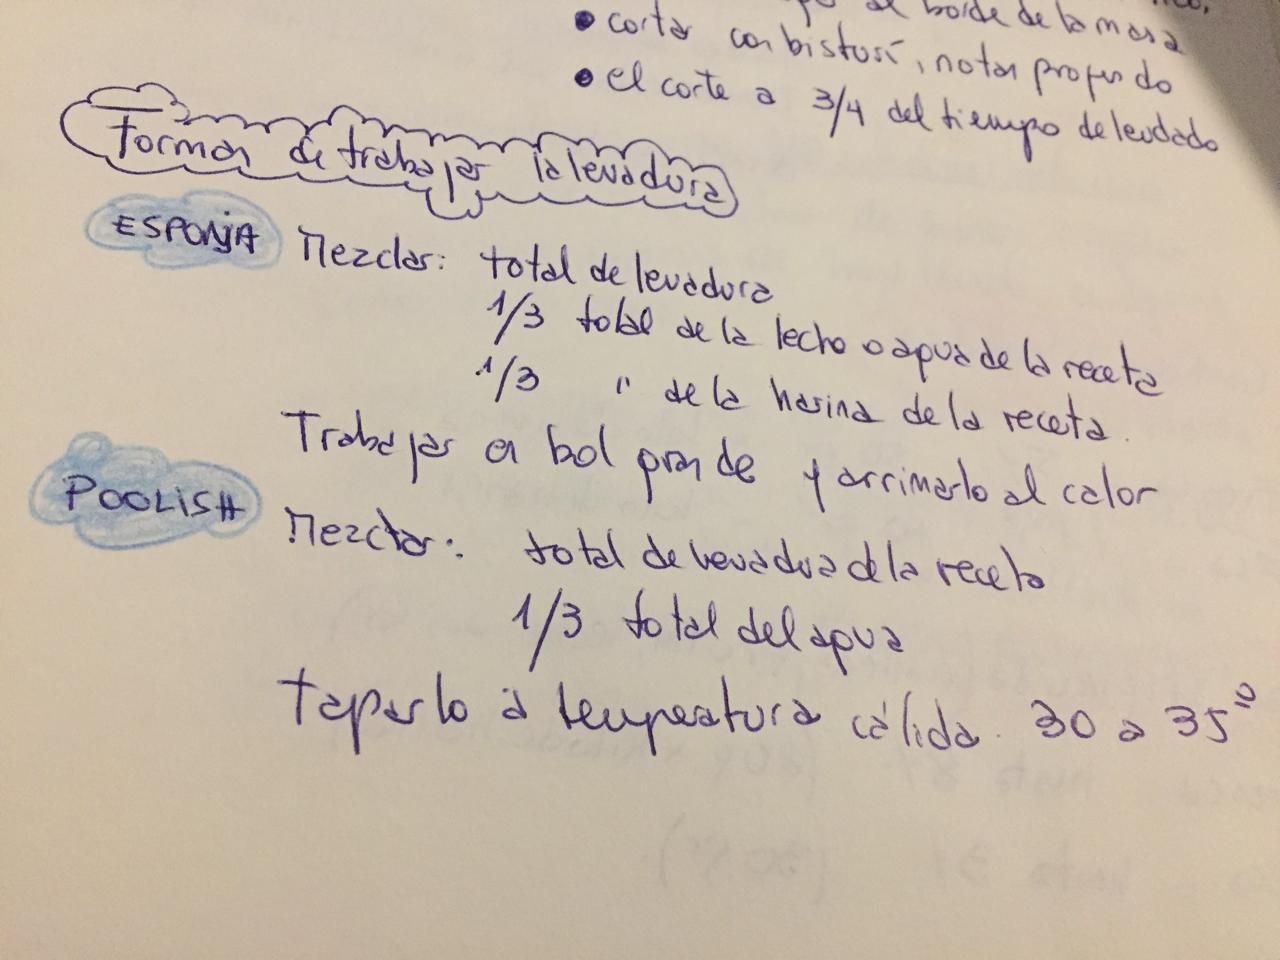 al borde de la masa
• cortar con bisturí, no tan profundo
• el corte a 3/4 del tiempo de leudado
Formas de trabajar la levadura
ESPONJA Mezclar: total de levadura
1/3 total de la leche o agua de la receta
1/3 " de la harina de la receta.
Trabajar en bol grande y arrimarlo al calor
POOLISH
Mezclar: total de levadura de la receta
1/3 total del agua
Taparlo a temperatura cálida. 30 a 35º